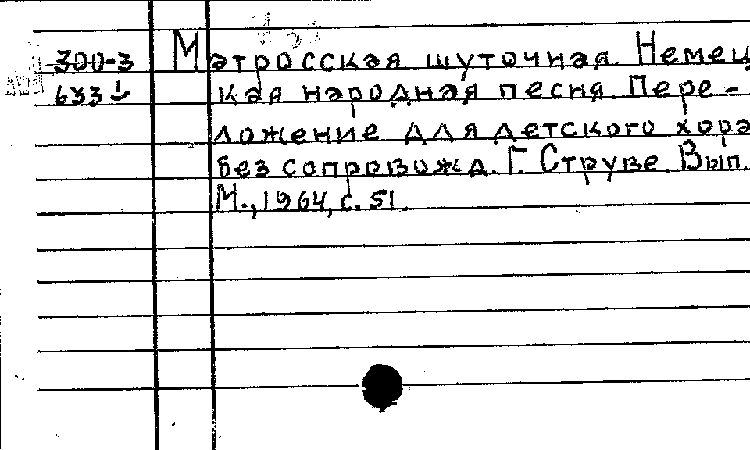 300-3
633 1
Матросская шуточная. Немец
кая народная песня. Пере-
ложение для детского хора
без сопровожд. Г. Струве. Вып.
М., 1964, с. 51.